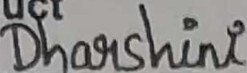 uct
Dharshini